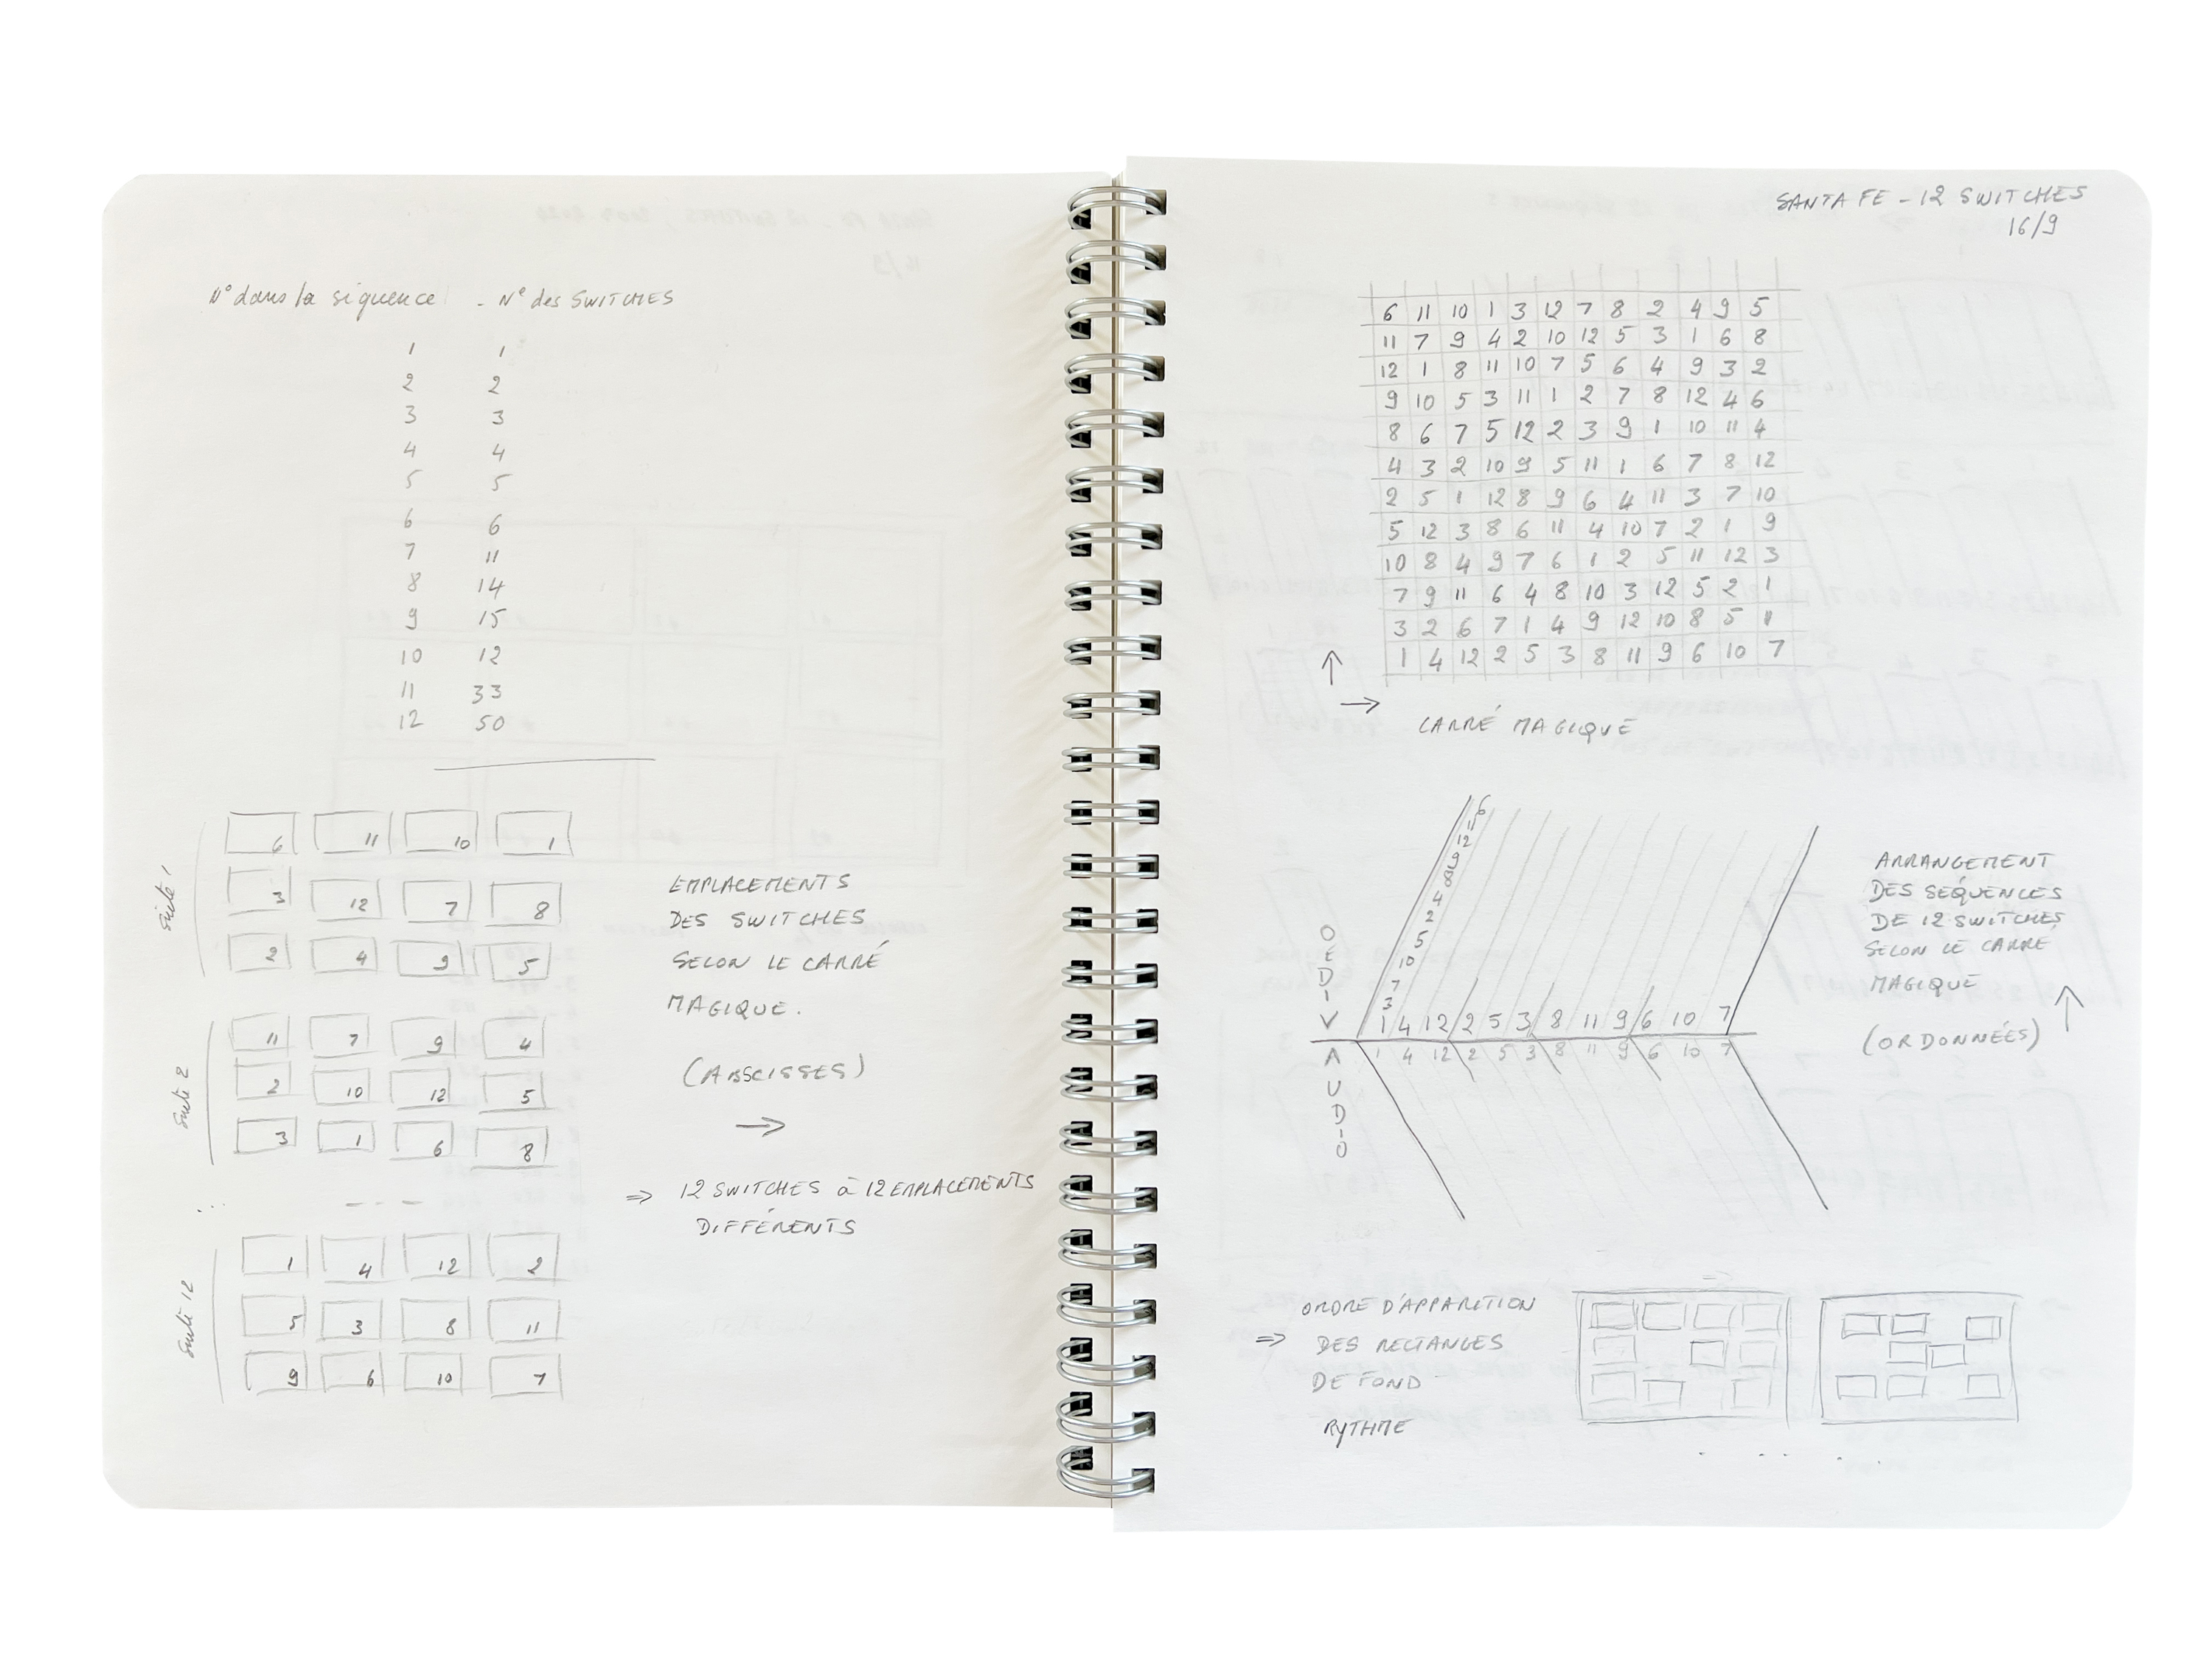 N° dans la séquence - N° des SWITCHES
1 1
2 2
3 3
4 4
5 5
6 6
7 11
8 14
9 15
10 12
11 33
12 50
Suite 1
6 11 10 1
3 12 7 8
2 4 9 5
EMPLACEMENTS
DES SWITCHES
SELON LE CARRÉ
MAGIQUE.
(ABSCISSES)
→
Suite 2
11 7 9 4
2 10 12 5
3 1 6 8
... ---
⇒ 12 SWITCHES à 12 EMPLACEMENTS
DIFFÉRENTS
Suite 12
1 4 12 2
5 3 8 11
9 6 10 7
SANTA FE - 12 SWITCHES
16/9
6 11 10 1 3 12 7 8 2 4 9 5
11 7 9 4 2 10 12 5 3 1 6 8
12 1 8 11 10 7 5 6 4 9 3 2
9 10 5 3 11 1 2 7 8 12 4 6
8 6 7 5 12 2 3 9 1 10 11 4
4 3 2 10 9 5 11 1 6 7 8 12
2 5 1 12 8 9 6 4 11 3 7 10
5 12 3 8 6 11 4 10 7 2 1 9
10 8 4 9 7 6 1 2 5 11 12 3
7 9 11 6 4 8 10 3 12 5 2 1
3 2 6 7 1 4 9 12 10 8 5 11
1 4 12 2 5 3 8 11 9 6 10 7
↑
→ CARRÉ MAGIQUE
6
11
12
9
8
4
2
5
10
7
3
1 4 12 2 5 3 8 11 9 6 10 7
VIDEO
AUDIO
1 4 12 2 5 3 8 11 9 6 10 7
ARRANGEMENT
DES SÉQUENCES
DE 12 SWITCHES
SELON LE CARRÉ
MAGIQUE
(ORDONNÉES) ↑
ORDRE D'APPARITION
⇒ DES RECTANGES
DE FOND
RYTHME